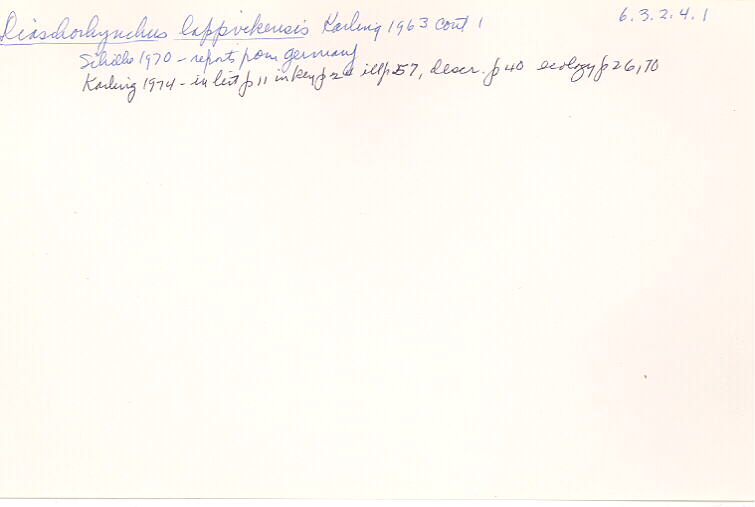 Diaschorhynchus lappvikensis Karling 1963 cont 1 6.3.2.4.1
1970 - reports from germany
Karling 1974 - in list p 11 in key p 2 ill p 57, descr. p 40 ecology p 26, 70